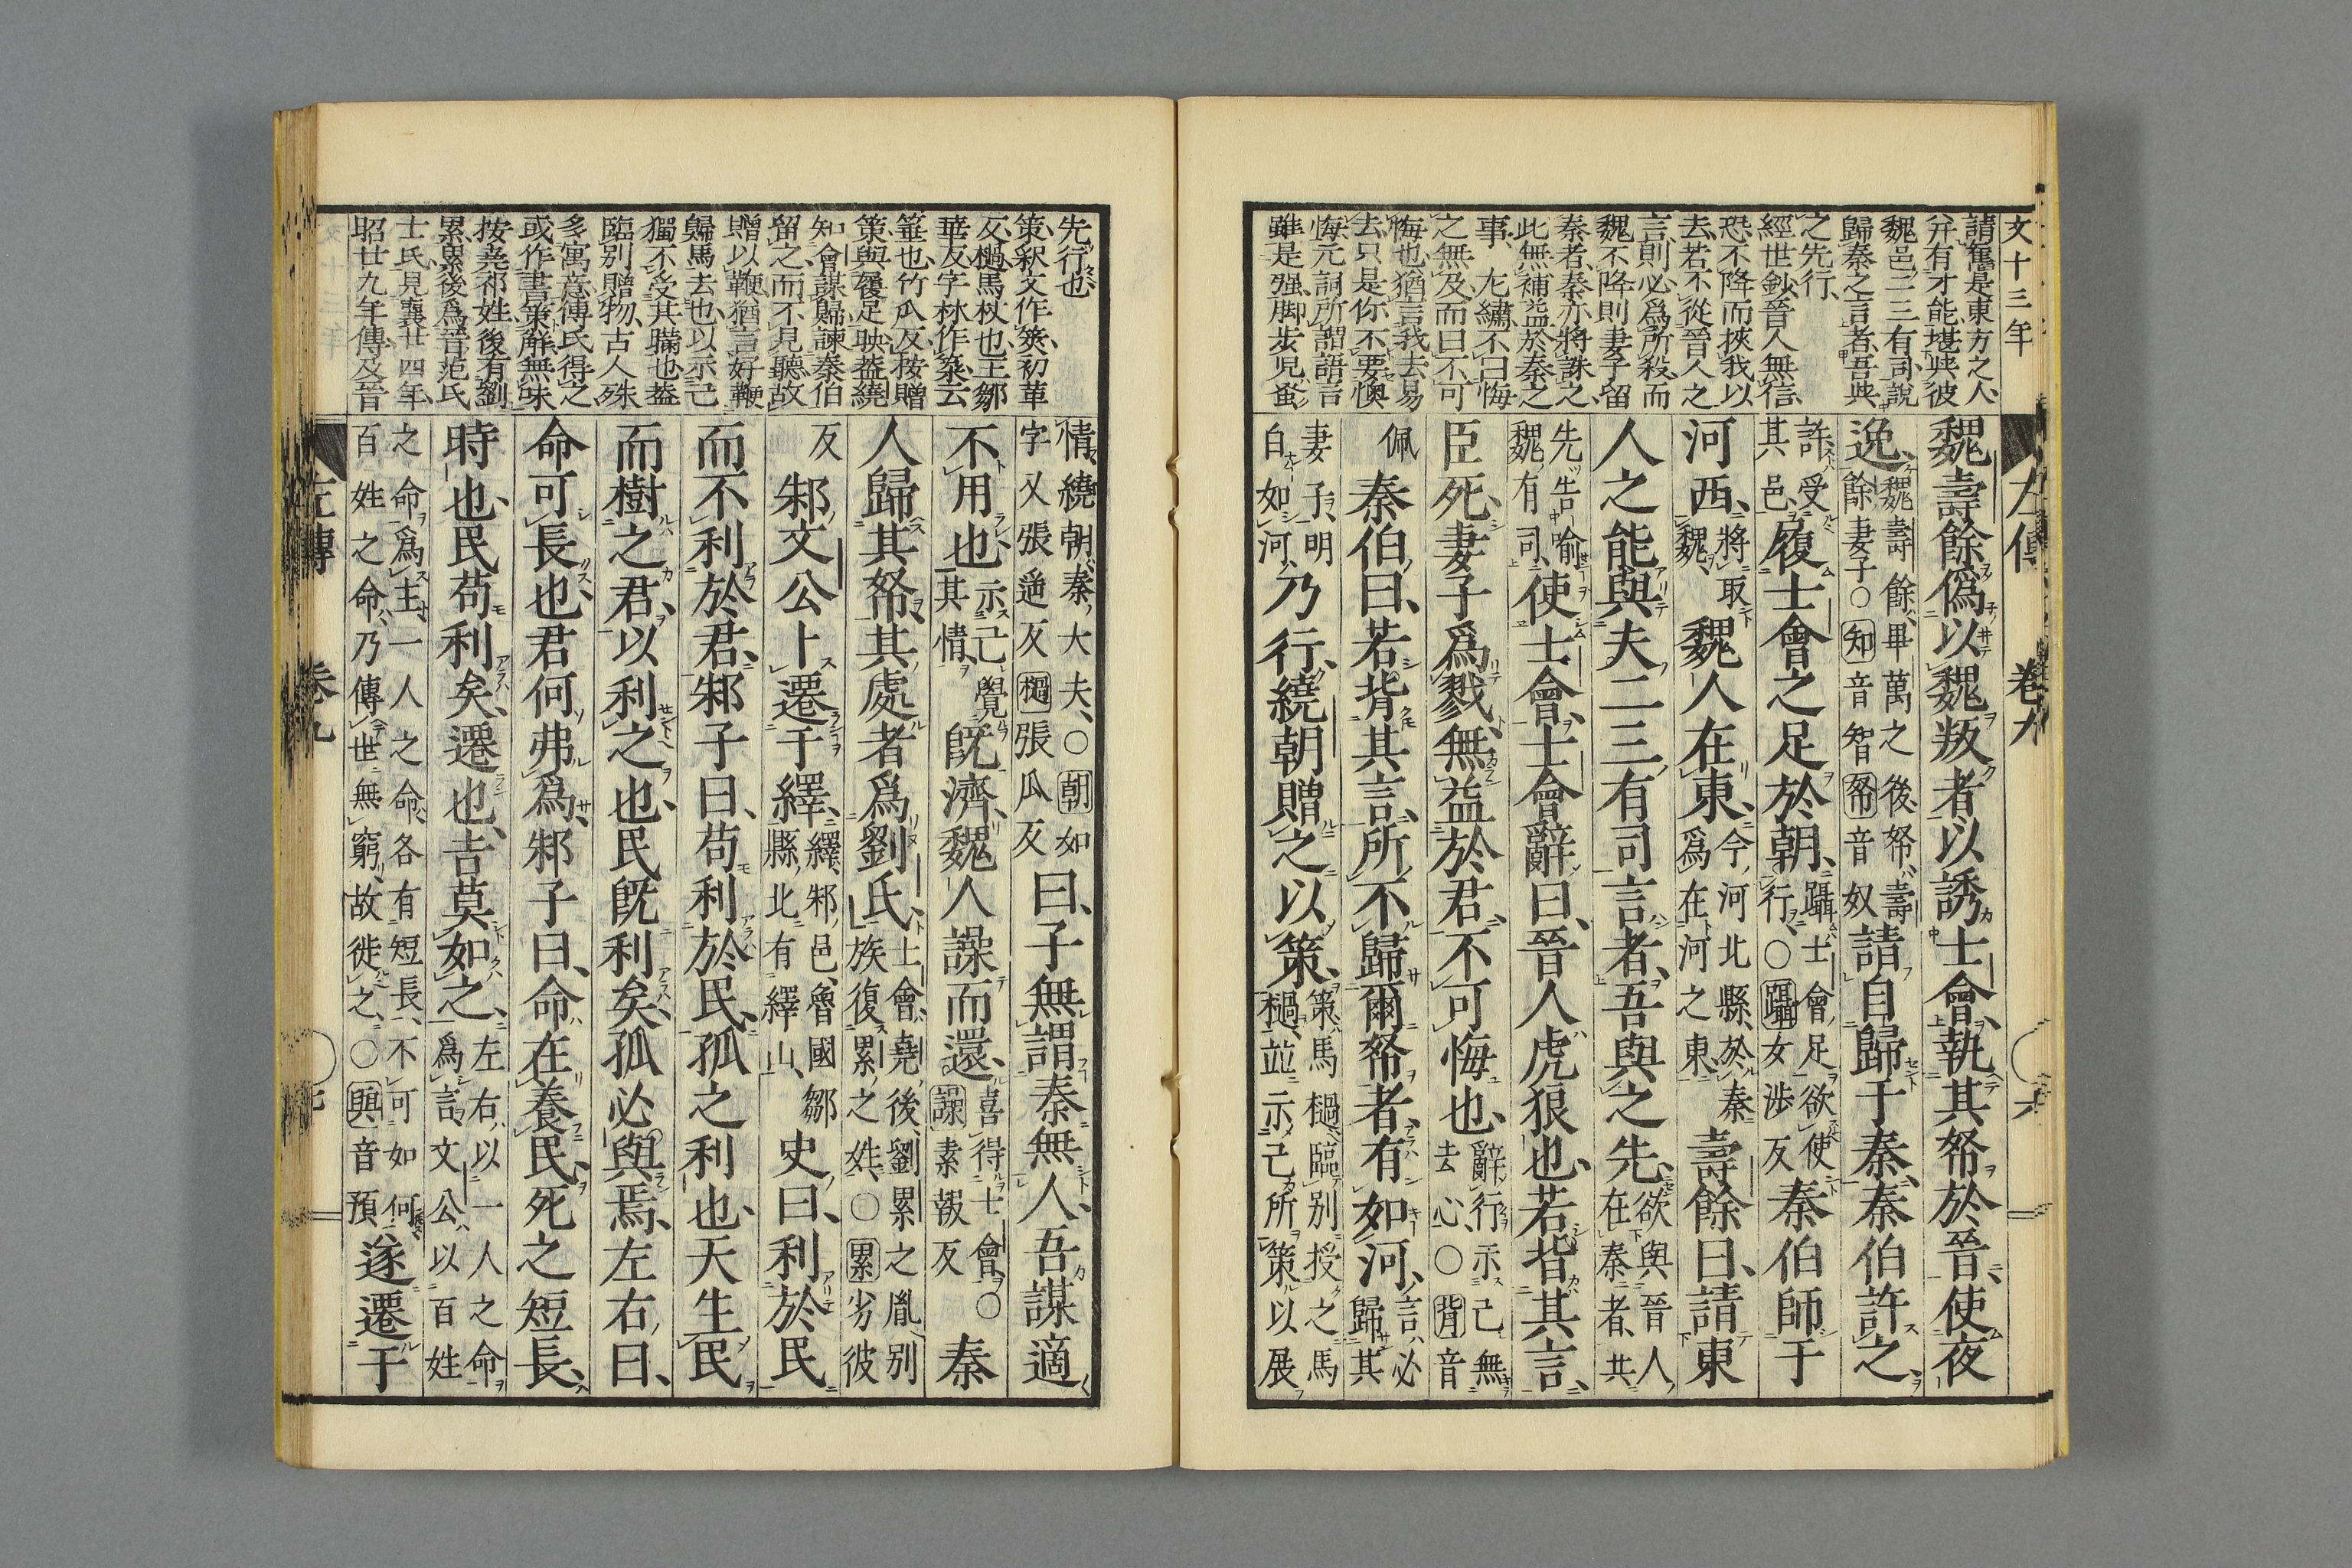 文十三年
請寓是東方之人
并有才能堪與彼
魏邑二三有司說
歸秦之言者吾與
之先行
經世鈔晉人無信
恐不降而挾我以
去若不從晉人之
言則必爲所殺而
魏不降則妻子留
秦者秦亦將誅之
此無補益於秦之
事 尤繡不曰悔
之無及而曰不可
悔也猶言我去易
去只是你不要懊
悔元詞所謂語言
雖是强脚步兒蚤
左傳 卷九 六
魏壽餘僞以魏叛者以誘士會執其帑於晉使夜
逸魏壽餘畢萬之後帑壽餘妻子○知音智帑音奴請自歸于秦秦伯許之
許受其邑履士會之足於朝躡士會足欲使行○躡女涉反秦伯師于
河西將取魏魏人在東今河北縣於秦爲在河之東壽餘曰請東
人之能與夫二三有司言者吾與之先欲與晉人在秦者共
先告喻魏有司使士會士會辭曰晉人虎狼也若背其言
臣死妻子爲戮無益於君不可悔也辭行示己無去心○背音
佩秦伯曰若背其言所不歸爾帑者有如河言必歸其
妻子明白如河乃行繞朝贈之以策策馬檛臨別授之馬檛並示己所策以展
先行也
策釈文作筴初革
反檛馬杖也王鄒
華反字林作䇲云
箠也竹瓜反按贈
策與履足映葢繞
知會謀歸諫秦伯
留之而不見聽故
贈以鞭猶言好鞭
歸馬去也以示己
獨不受其瞞也葢
臨別贈物古人殊
多寓意傅氏得之
或作書策解無味
按堯祁姓後有劉
累累後爲晉范氏
士氏見襄廿四年
昭廿九年傳及晉
情繞朝秦大夫○朝如字又張遥反檛張瓜反曰子無謂秦無人吾謀適
不用也示己覺其情既濟魏人譟而還喜得士會○譟素報反秦
人歸其帑其處者爲劉氏士會堯後劉累之胤別族復累之姓○累劣彼
反邾文公卜遷于繹繹邾邑魯國鄒縣北有繹山史曰利於民
而不利於君邾子曰苟利於民孤之利也天生民
而樹之君以利之也民既利矣孤必與焉左右曰
命可長也君何弗爲邾子曰命在養民死之短長
時也民苟利矣遷也吉莫如之左右以一人之命爲言文公以百姓
之命爲主一人之命各有短長不可如何百姓之命乃傳世無窮故徙之○與音預遂遷于
左傳 卷九 七